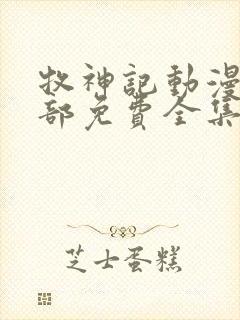 牧神記動漫
部免費全集
芝士蛋糕